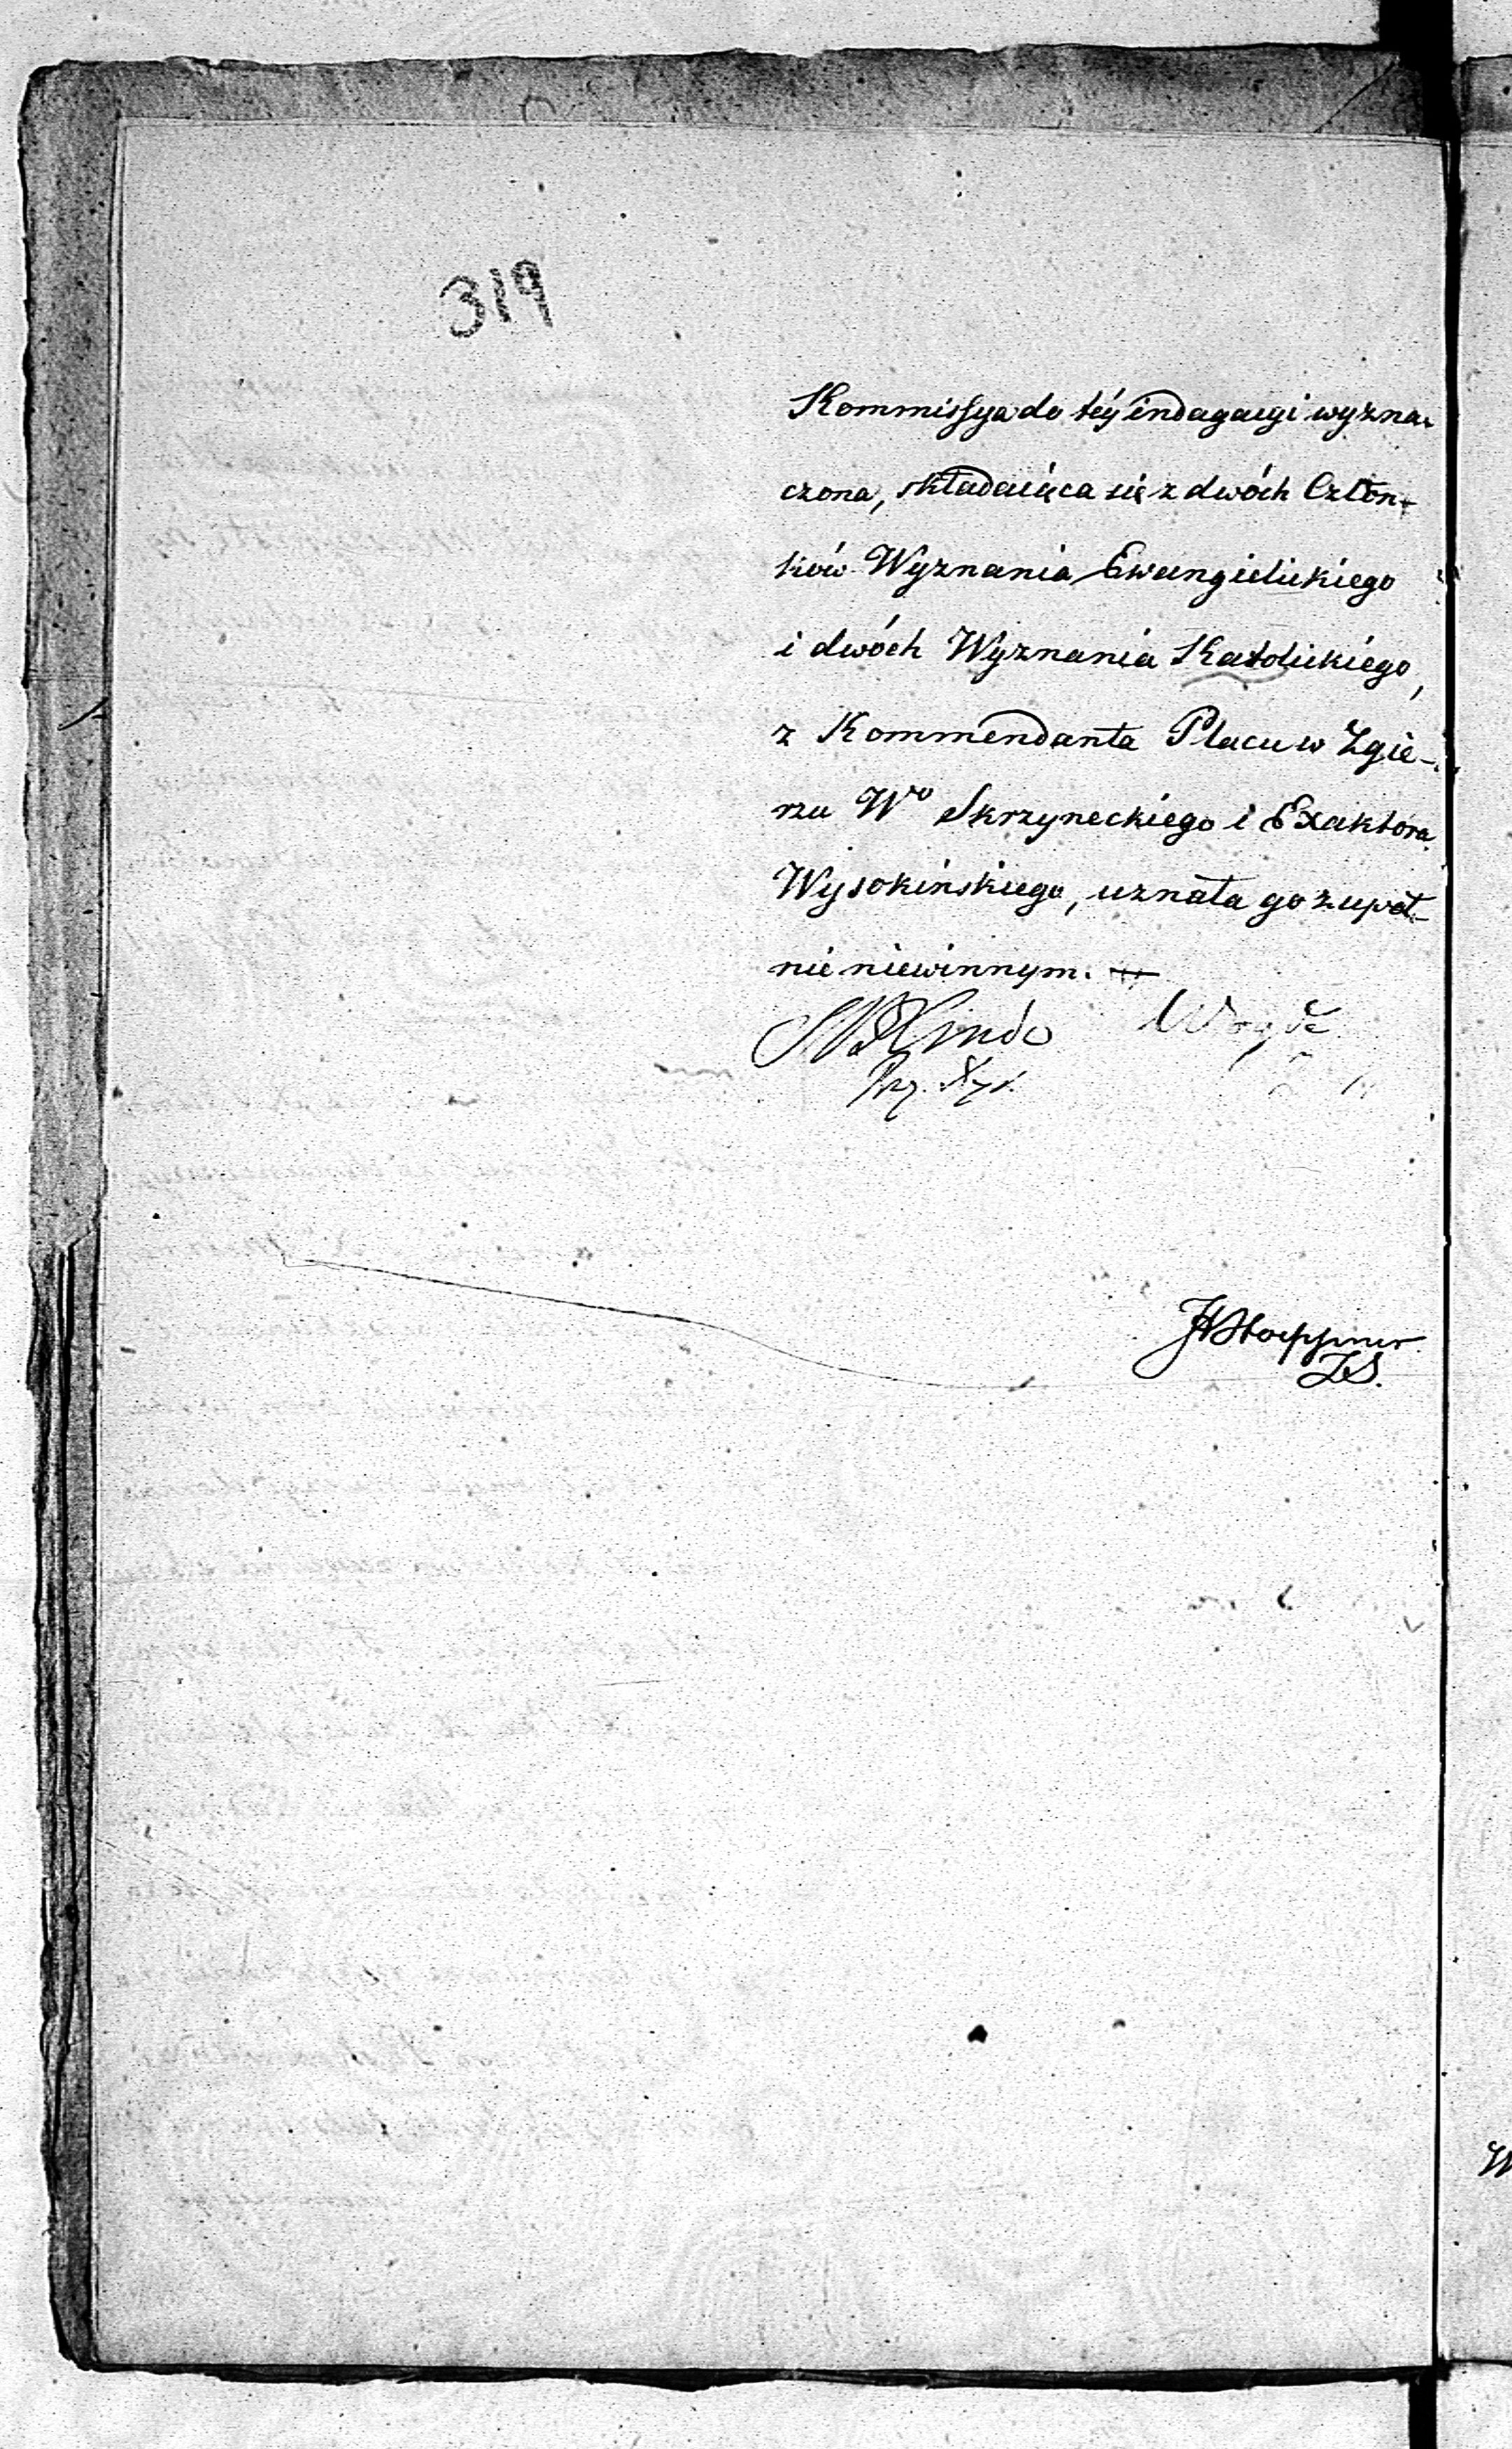 319
Kommissya do téy indagacyi wyzna-
czona, składaiąca się z dwóch Człon-
ków Wyznania Ewangielickiego
i dwóch Wyznania Katolickiego,
z Kommendanta Placu w Zgie-
rzu Wo Skrzyneckiego i Exaktora
Wysokińskiego, uznała go zupeł-
nie niewinnym.